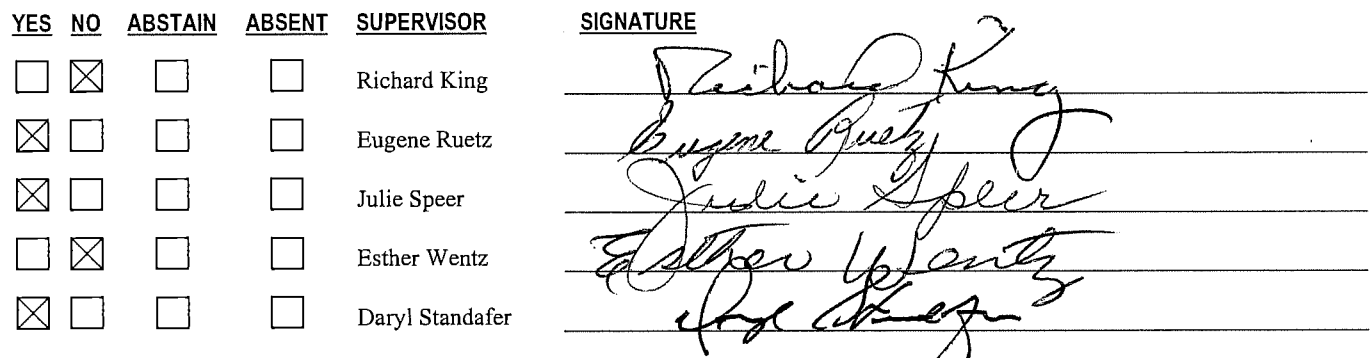 YES NO ABSTAIN ABSENT SUPERVISOR SIGNATURE
Richard King Richard King
Eugene Ruetz Eugene Ruetz
Julie Speer Julie Speer
Esther Wentz Esther Wentz
Daryl Standafer Daryl Standafer